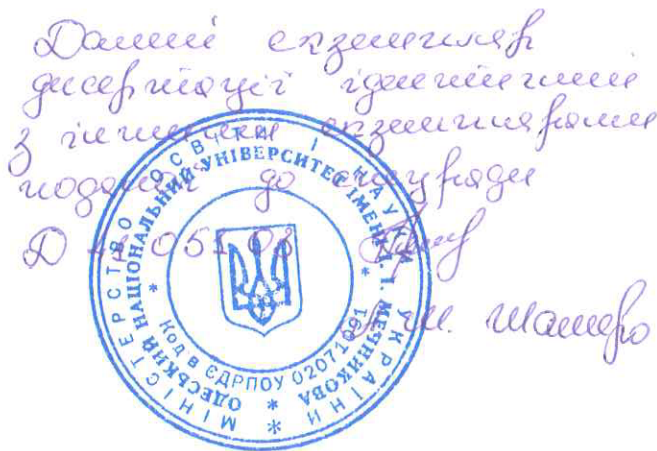 Даний екземпляр
дисертації ідентичний
з іншими екземплярами
поданий до спецради
Д 41.051.03
МІНІСТЕРСТВО ОСВІТИ І НАУКИ УКРАЇНИ
ОДЕСЬКИЙ НАЦІОНАЛЬНИЙ УНІВЕРСИТЕТ ІМЕНІ І. І. МЕЧНИКОВА
Код в ЄДРПОУ 02071091